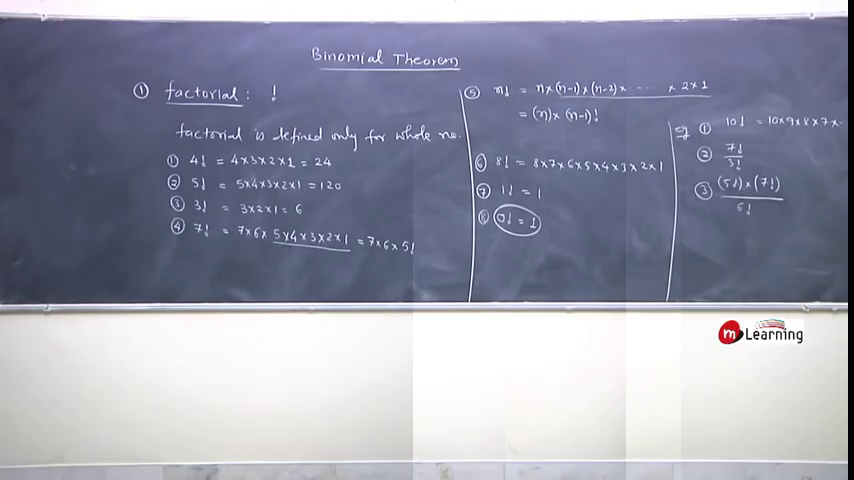 Binomial Theorem
① factorial : !
factorial is defined only for whole no.
① 4! = 4×3×2×1 = 24
② 5! = 5×4×3×2×1 = 120
③ 3! = 3×2×1 = 6
④ 7! = 7×6×5×4×3×2×1 = 7×6×5!
⑤ n! = n×(n-1)×(n-2)×.....×2×1
= (n)×(n-1)!
⑥ 8! = 8×7×6×5×4×3×2×1
⑦ 1! = 1
⑧ 0! = 1
eg ① 10! = 10×9×8×7×..
② 7!/3!
③ (5!)×(7!)/6!
m Learning